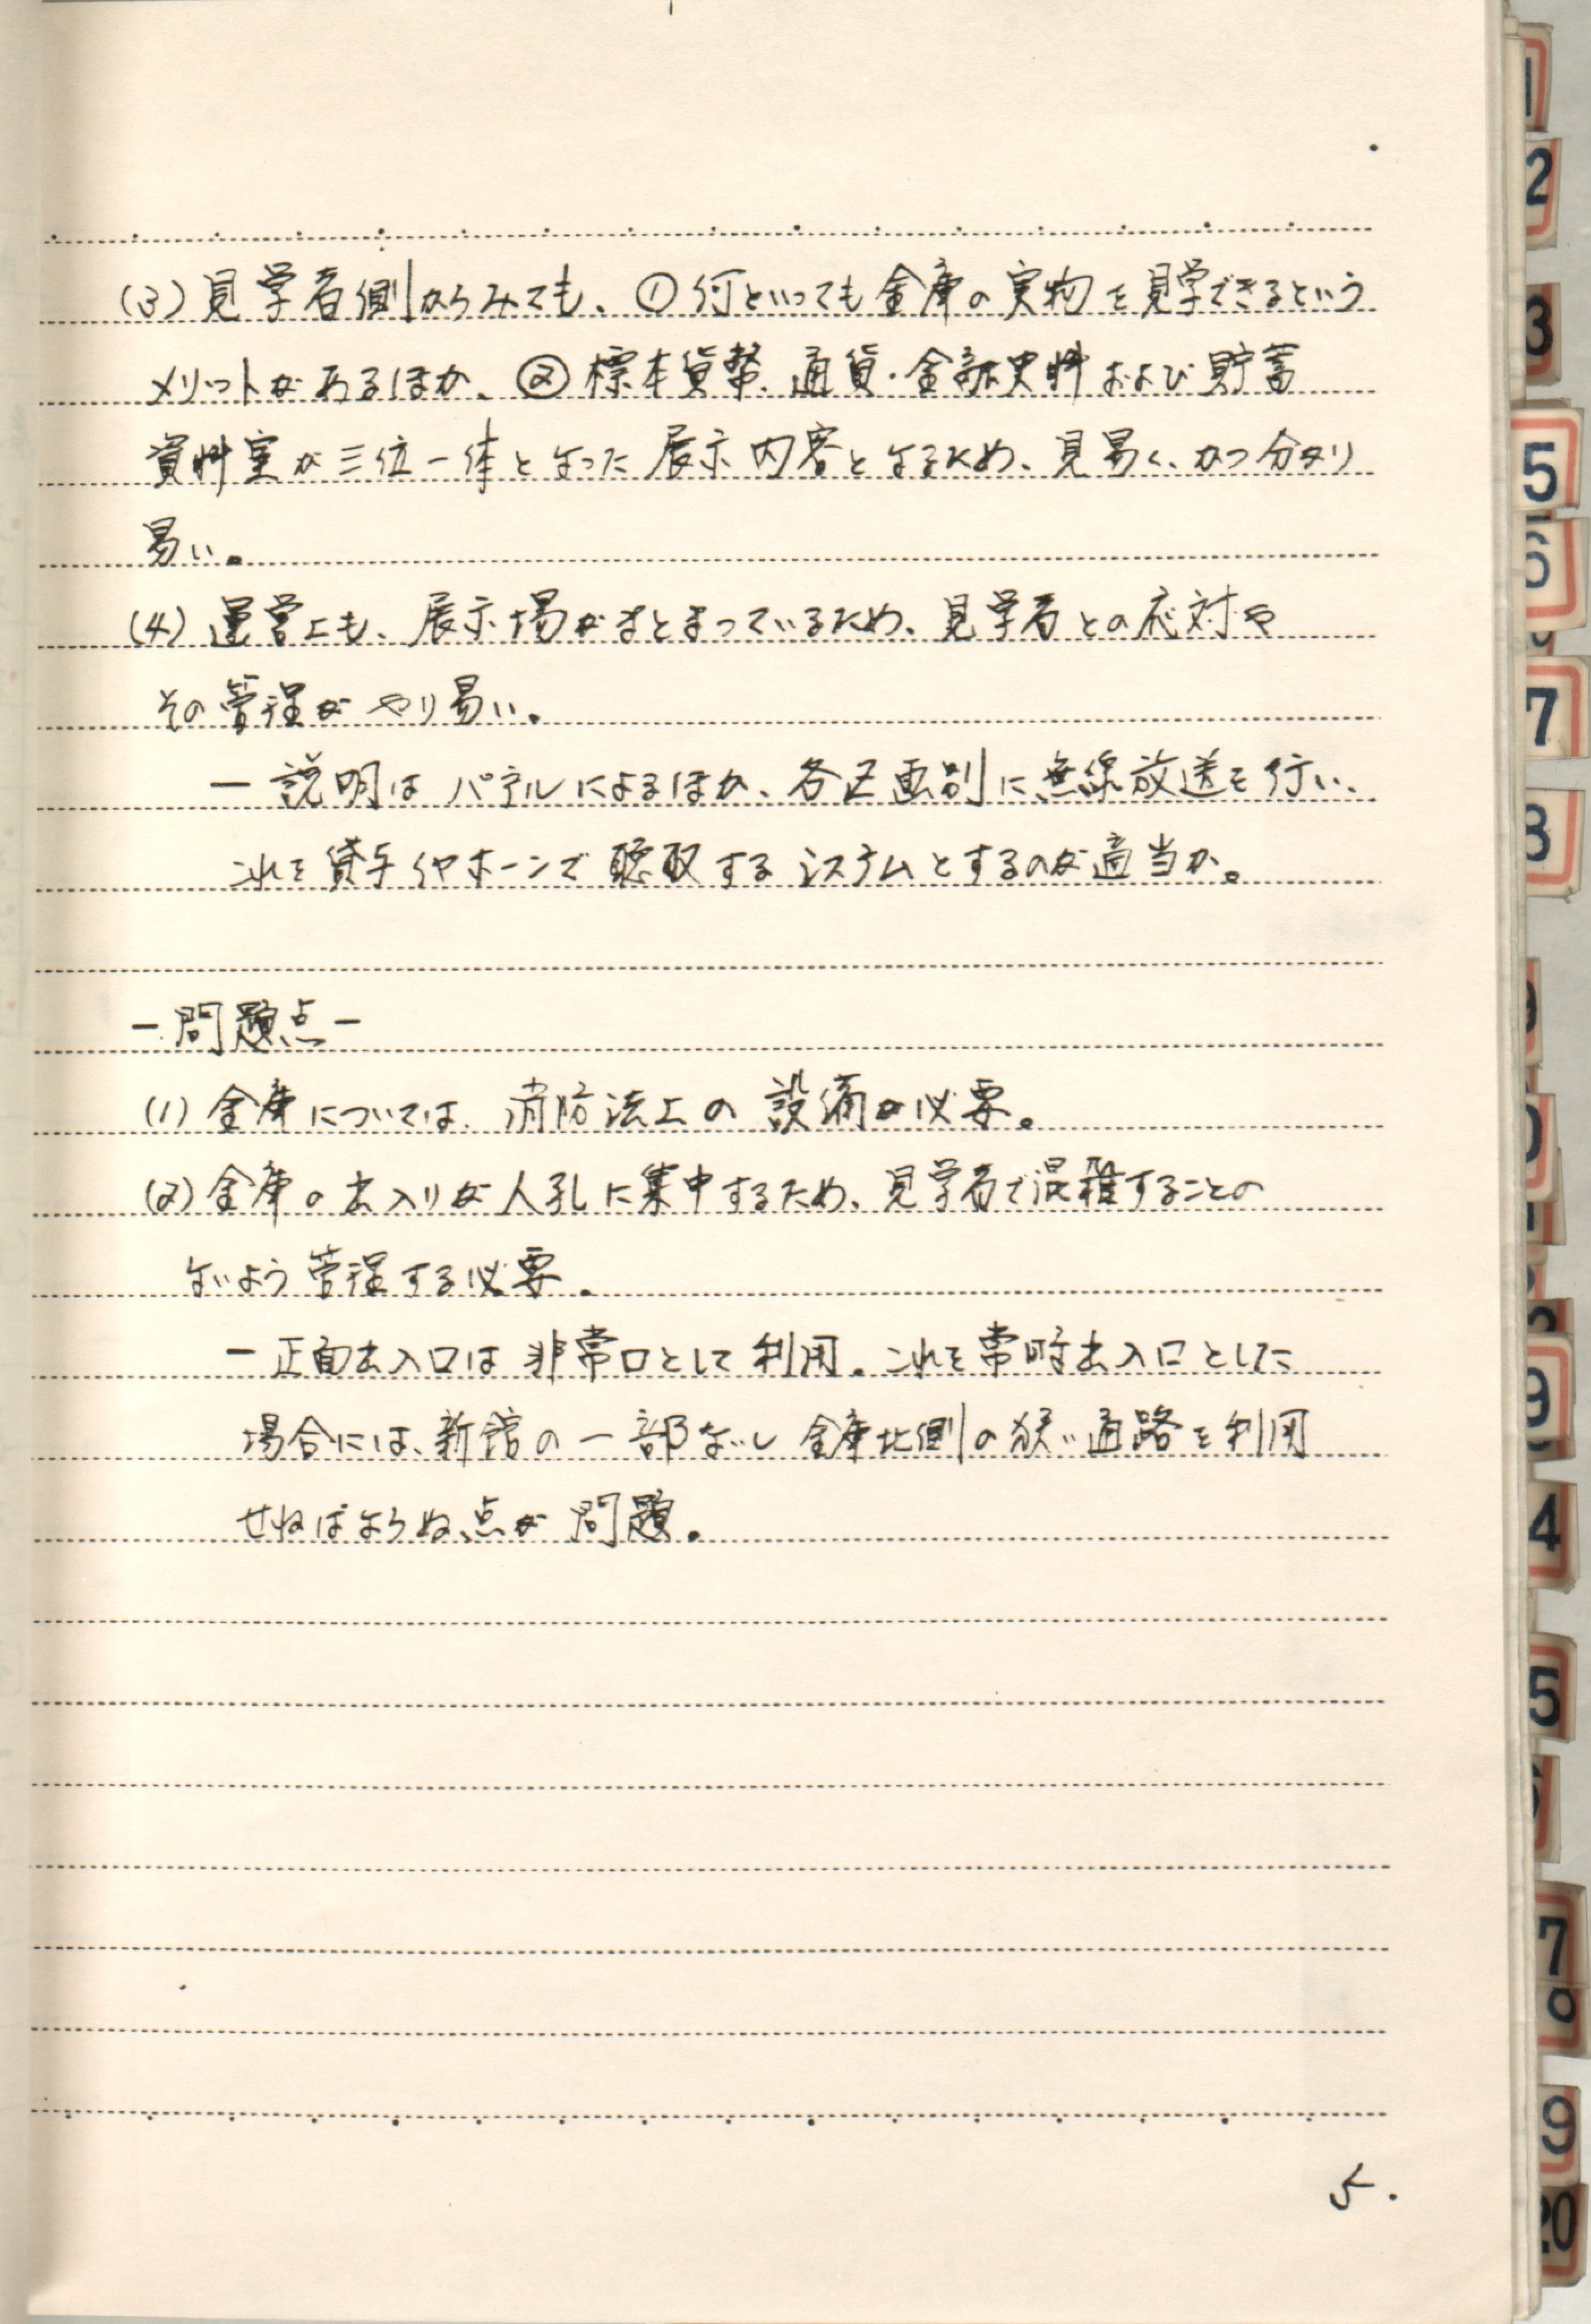 (3) 見学者側からみても、① 何といっても金庫の実物を見学できるという
メリットがあるほか、② 標本貨幣、通貨・金融史料および貯蓄
資料室が三位一体となった展示内容となるため、見易く、かつ分かり
易い。
(4) 運営上も、展示場がまとまっているため、見学者との応対や
その管理がやり易い。
― 説明はパネルによるほか、各区画別に無線放送を行い、
これを貸与イヤホーンで聴取するシステムとするのが適当か。
― 問題点 ―
(1) 金庫については、消防法上の設備が必要。
(2) 金庫の出入りが人孔に集中するため、見学者で混雑することの
ないよう管理する必要。
― 正面出入口は非常口として利用。これを常時出入口とした
場合には、新館の一部ないし金庫北側の狭い通路を利用
せねばならぬ点が問題。
5.
1
2
3
5
6
7
8
9
0
9
4
5
7
9
20